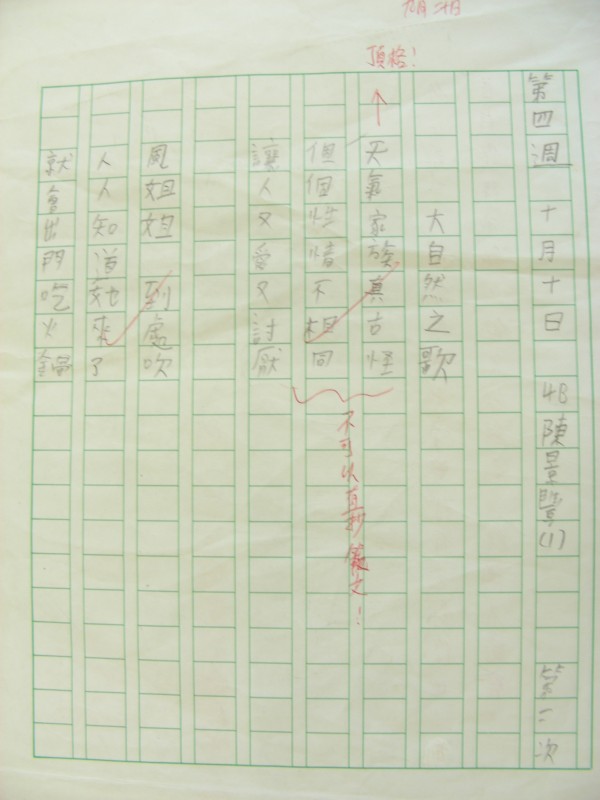 頂格！
第四週 十月十日 4B 陳景 (1) 第二次
大自然之歌
天氣家族真古怪
個個性情不相同
不可以直抄範文！
讓人又愛又討厭
風姐姐 到處吹
人人知道她來了
就會出門吃火鍋